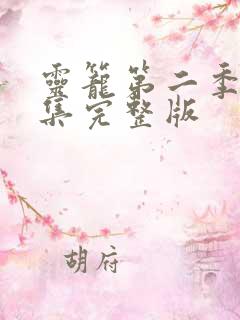 靈籠第二季
集完整版
胡府